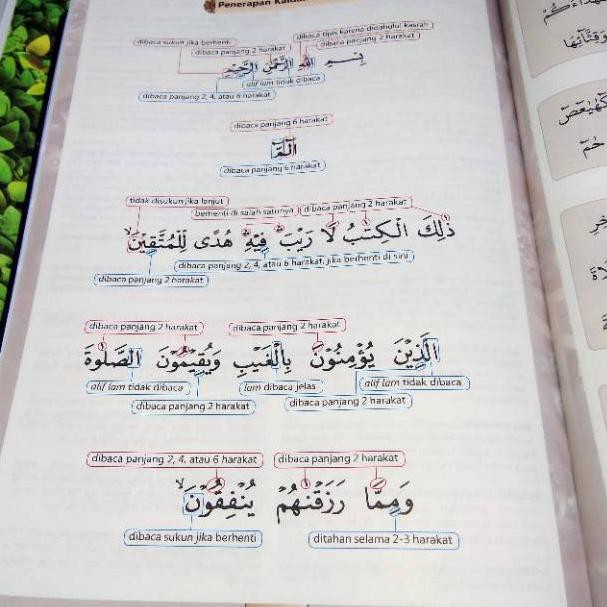 Penerapan Kaidah
dibaca sukun jika berhenti
dibaca tipis karena didahului kasrah
dibaca panjang 2 harakat
dibaca panjang 2 harakat
بِسْمِ اللهِ الرَّحْمٰنِ الرَّحِيْمِ
alif lam tidak dibaca
dibaca panjang 2, 4, atau 6 harakat
dibaca panjang 6 harakat
الۤمّۤ
dibaca panjang 6 harakat
tidak disukun jika lanjut
berhenti di salah satunya
dibaca panjang 2 harakat
ذٰلِكَ الْكِتٰبُ لَا رَيْبَ ۛ فِيْهِ ۛ هُدًى لِّلْمُتَّقِيْنَۙ
dibaca panjang 2, 4, atau 6 harakat, jika berhenti di sini
dibaca panjang 2 harakat
dibaca panjang 2 harakat
dibaca panjang 2 harakat
الَّذِيْنَ يُؤْمِنُوْنَ بِالْغَيْبِ وَيُقِيْمُوْنَ الصَّلٰوةَ
alif lam tidak dibaca
lam dibaca jelas
alif lam tidak dibaca
dibaca panjang 2 harakat
dibaca panjang 2 harakat
dibaca panjang 2, 4, atau 6 harakat
dibaca panjang 2 harakat
وَمِمَّا رَزَقْنٰهُمْ يُنْفِقُوْنَۙ
dibaca sukun jika berhenti
ditahan selama 2-3 harakat